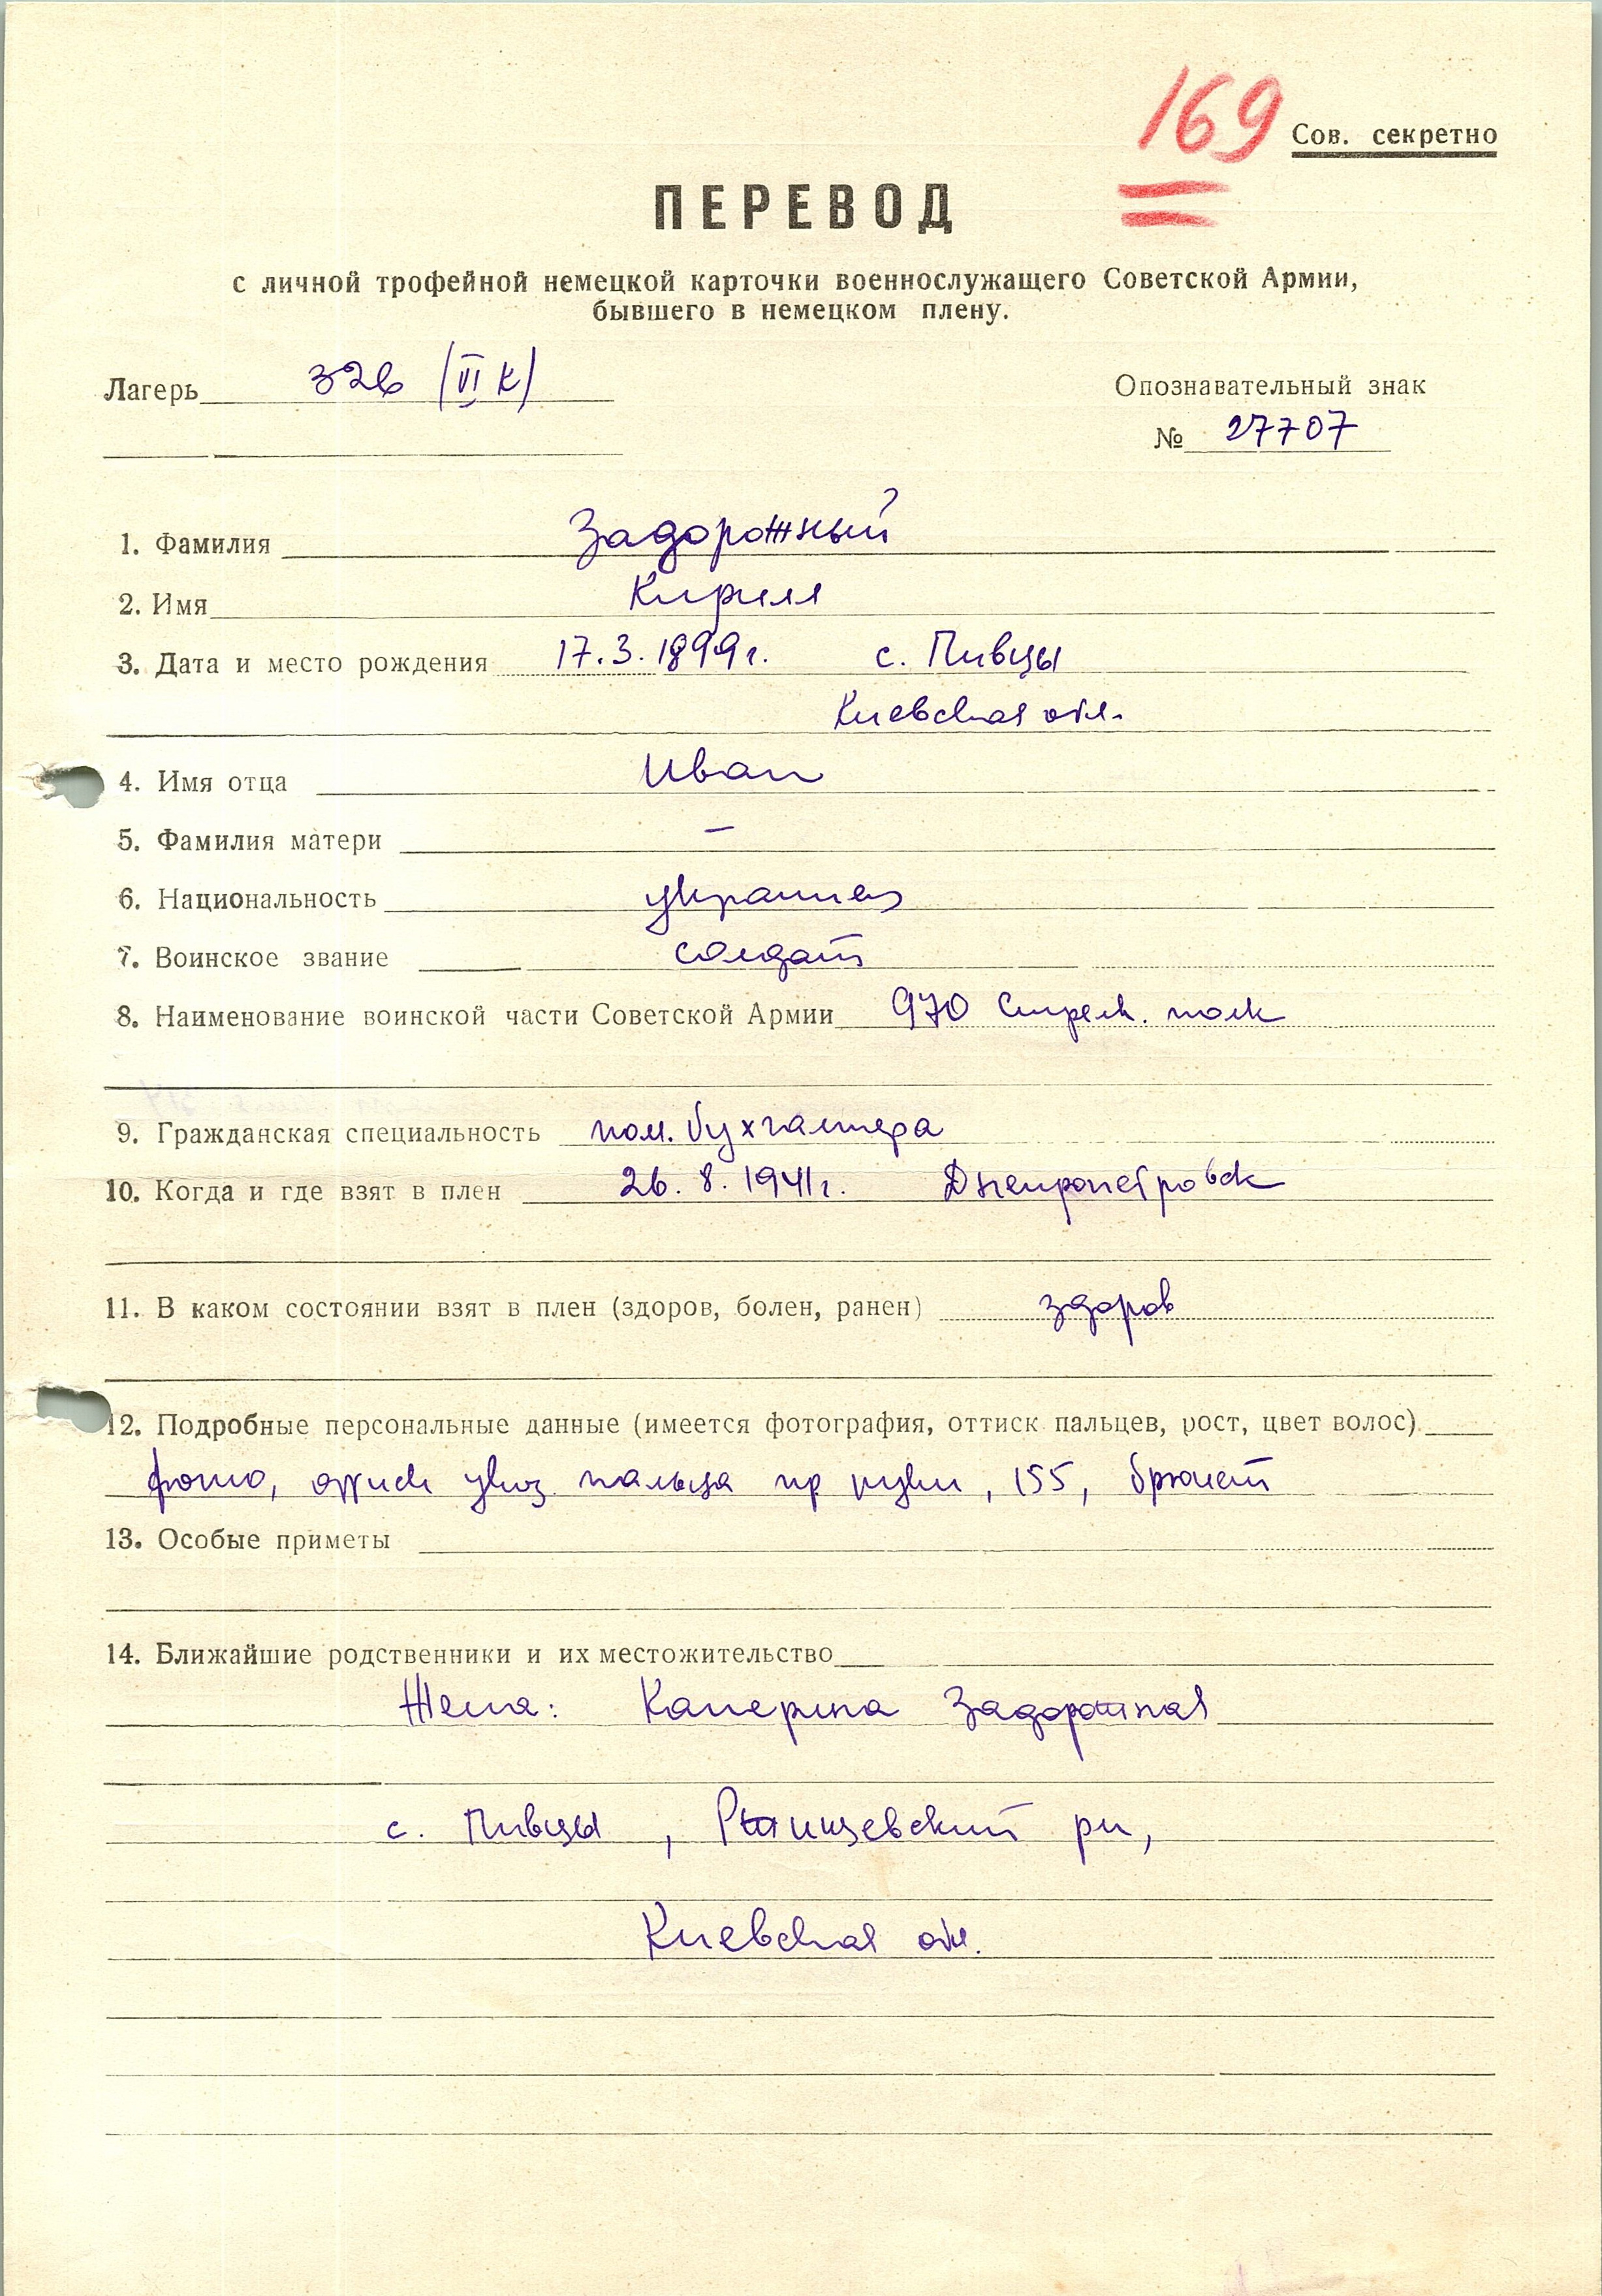 169
Сов. секретно
ПЕРЕВОД
с личной трофейной немецкой карточки военнослужащего Советской Армии,
бывшего в немецком плену.
Лагерь 326 (VI К)
Опознавательный знак
№ 27707
1. Фамилия Задорожный
2. Имя Кирилл
3. Дата и место рождения 17.3.1899г. с. Пивцы
Киевская обл.
4. Имя отца Иван
5. Фамилия матери —
6. Национальность украинец
7. Воинское звание солдат
8. Наименование воинской части Советской Армии 970 Стрелк. полк
9. Гражданская специальность пом. бухгалтера
10. Когда и где взят в плен 26.8.1941г. Днепропетровск
11. В каком состоянии взят в плен (здоров, болен, ранен) здоров
12. Подробные персональные данные (имеется фотография, оттиск пальцев, рост, цвет волос)
фото, оттиск указ. пальца пр руки, 155, брюнет
13. Особые приметы
14. Ближайшие родственники и их местожительство
Жена: Задорожная
с. Пивцы, Ржищевский рн,
Киевская обл.